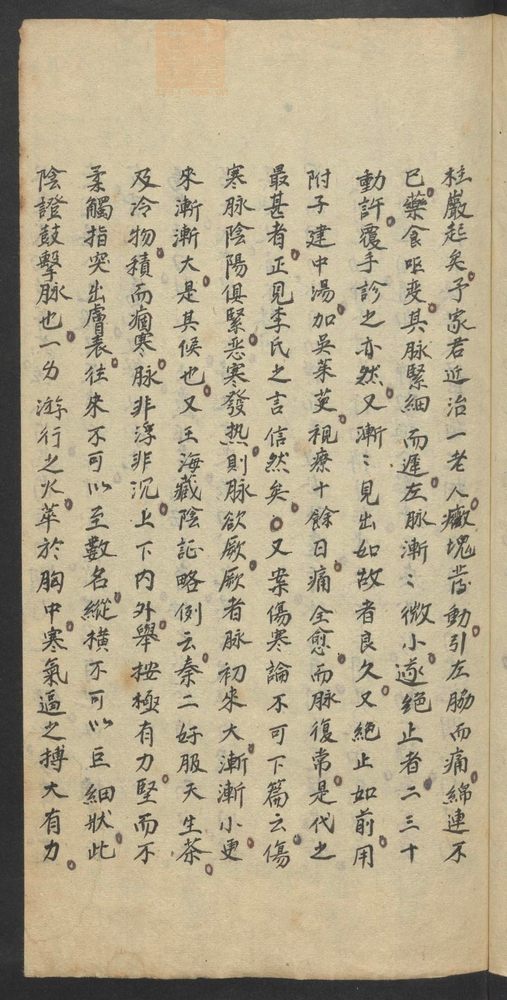 桂嚴起矣予家君近治一老人癥塊發動引左脇而痛綿連不
已藥食嘔变其脉緊細而遲左脉漸〻微小遂絕止者二三十
動許覆手診之亦然又漸〻見出如故者良久又絕止如前用
附子建中湯加吳茱萸視療十餘日痛全愈而脉復常是代之
最甚者正見李氏之言信然矣○又案傷寒論不可下篇云傷
寒脉陰陽俱緊惡寒發热則脉欲厥厥者脉初來大漸漸小更
來漸漸大是其候也又王海藏陰証略例云秦二好服天生茶
及冷物積而痼寒脉非浮非沉上下内外舉按極有力堅而不
柔觸指突出膚表往來不可以至數名縱橫不可以巨細狀此
陰證鼓擊脉也一勺游行之火萃於胸中寒氣逼之搏大有力